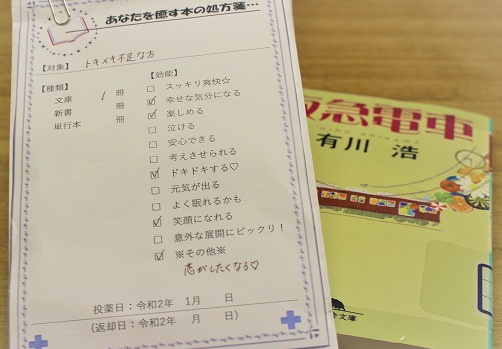 あなたを癒す本の処方箋…
【対象】 トキメキ不足な方
【種類】
文庫 1 冊
新書 冊
単行本 冊
【効能】
□ スッキリ爽快☆
☑ 幸せな気分になる
☑ 楽しめる
□ 泣ける
□ 安心できる
□ 考えさせられる
☑ ドキドキする♡
□ 元気が出る
□ よく眠れるかも
☑ 笑顔になれる
□ 意外な展開にビックリ！
☑ ※その他※
恋がしたくなる♡
投薬日：令和2年 1月 日
（返却日：令和2年 月 日）
急電車
HIRO ARIKAWA
有川 浩
文庫